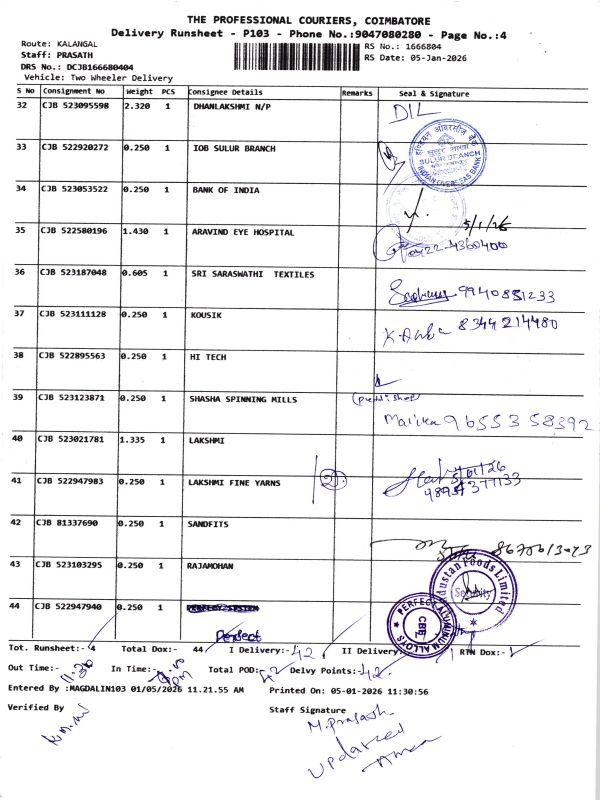 THE PROFESSIONAL COURIERS, COIMBATORE
Delivery Runsheet - P103 - Phone No.:9047080280 - Page No.:4
Route: KALANGAL RS No.: 1666804
Staff: PRASATH RS Date: 05-Jan-2026
DRS No.: DCJB166680404
Vehicle: Two Wheeler Delivery
S No Consignment No Weight PCS Consignee Details Remarks Seal & Signature
32 CJB 523095598 2.320 1 DHANLAKSHMI N/P DIL
33 CJB 522920272 0.250 1 IOB SULUR BRANCH
SULUR BRANCH
INDIAN OVERSEAS BANK
34 CJB 523053522 0.250 1 BANK OF INDIA
5/1/26
35 CJB 522580196 1.430 1 ARAVIND EYE HOSPITAL
0422-4360400
36 CJB 523187048 0.605 1 SRI SARASWATHI TEXTILES
9940831233
37 CJB 523111128 0.250 1 KOUSIK
8344214480
38 CJB 522895563 0.250 1 HI TECH
39 CJB 523123871 0.250 1 SHASHA SPINNING MILLS
Malika 9655358392
40 CJB 523021781 1.335 1 LAKSHMI
41 CJB 522947983 0.250 1 LAKSHMI FINE YARNS 2
42 CJB 81337690 0.250 1 SANDFITS
43 CJB 523103295 0.250 1 RAJAMOHAN
Hindustan Foods Limited
Security
44 CJB 522947940 0.250 1
Perfect
PERFECT ALUMINIUM ALLOYS
CBE
Tot. Runsheet:- 4 Total Dox:- 44 I Delivery:- 42 II Delivery:- RTN Dox:-
Out Time:- 11.30 In Time:- Total POD:- 42 Delvy Points:- 42
Entered By :MAGDALIN103 01/05/2026 11.21.55 AM Printed On: 05-01-2026 11:30:56
Verified By Staff Signature
M.Prasath
updated